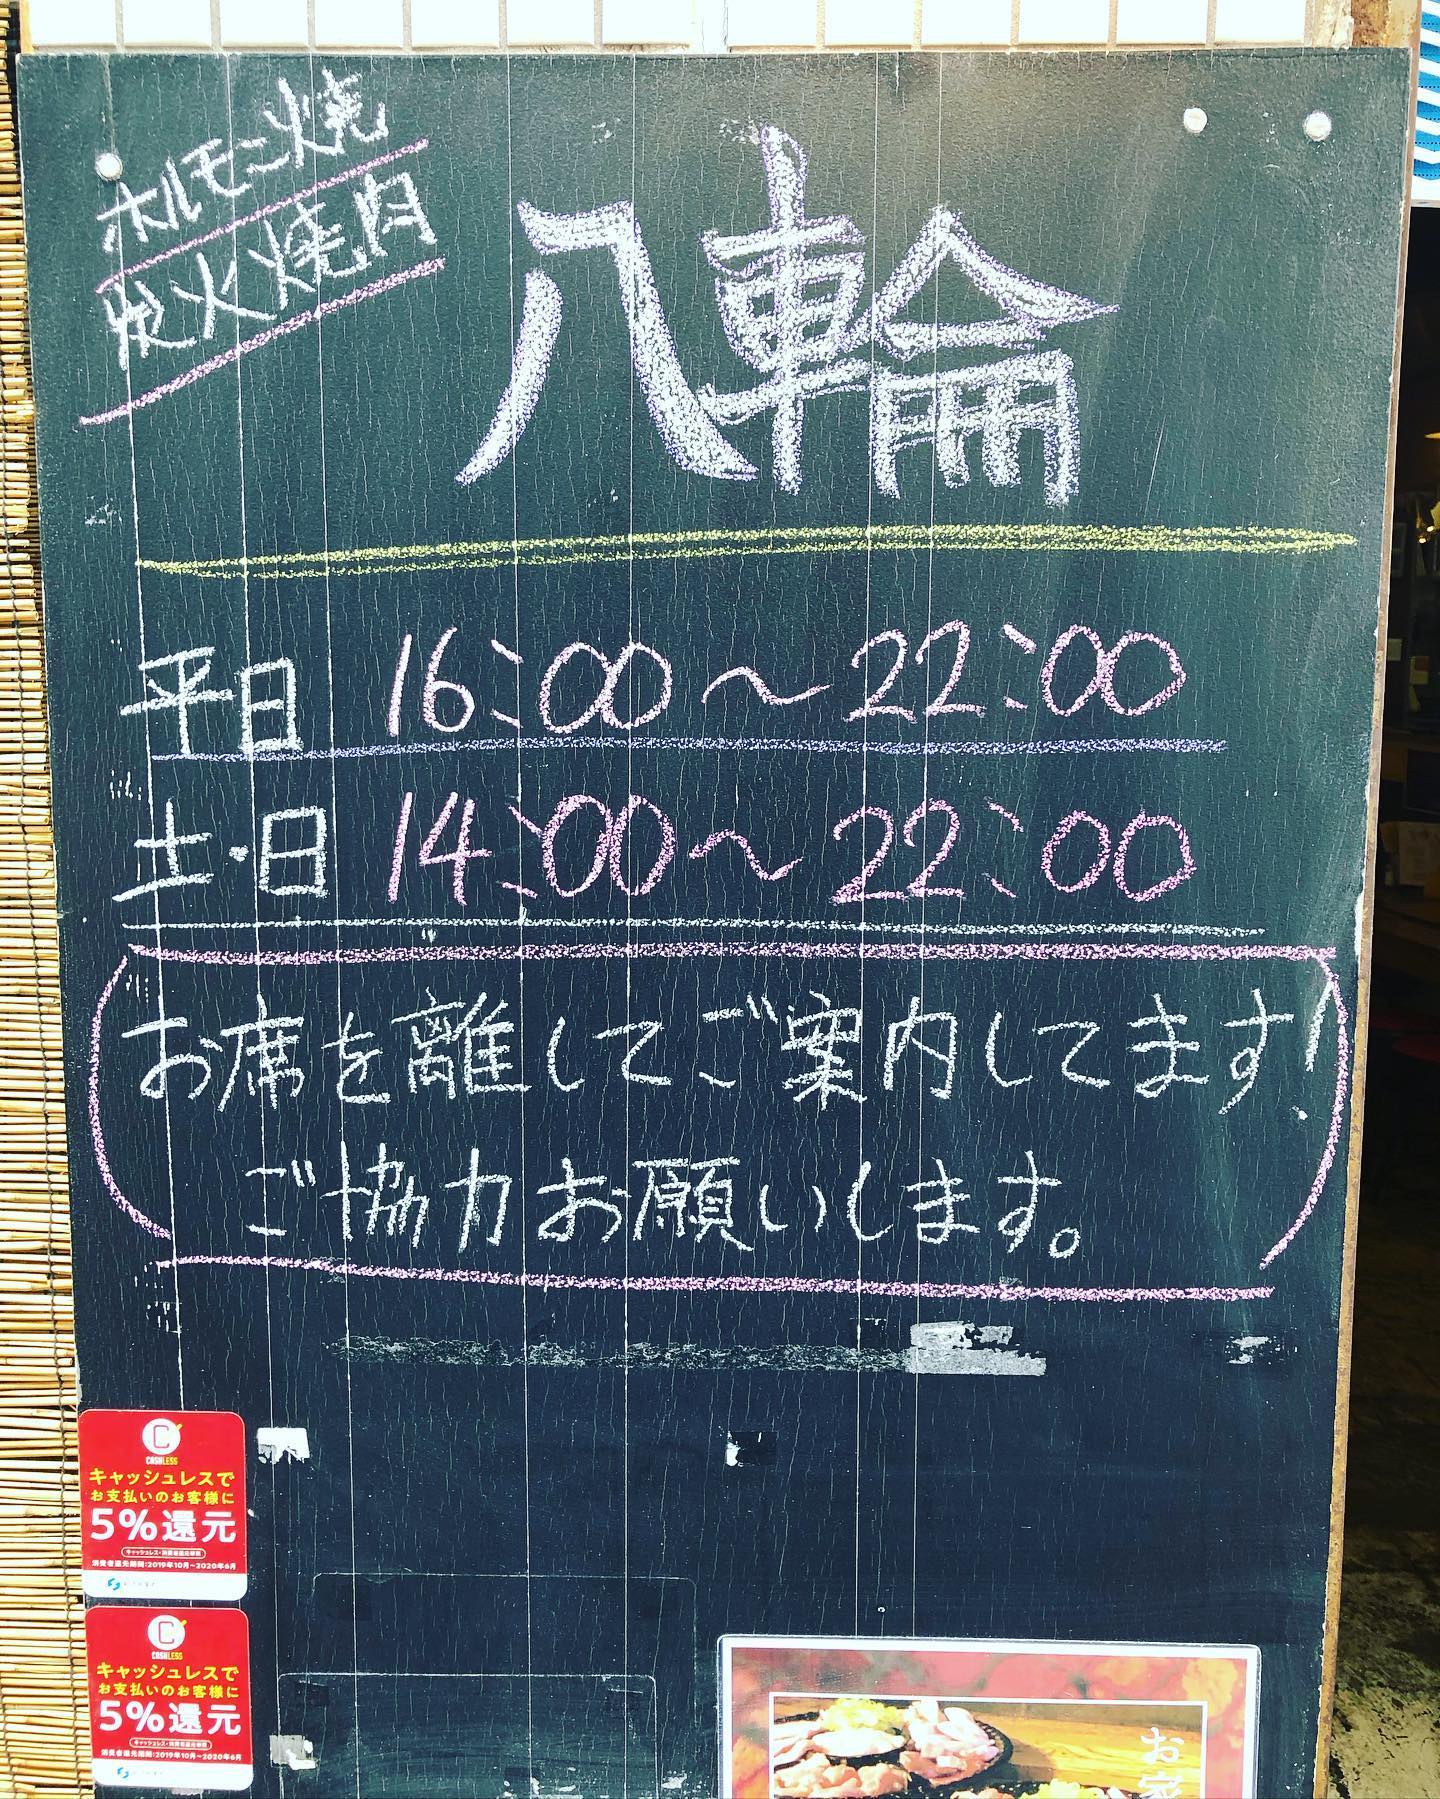 ホルモン焼
炭火焼肉
八輪
平日 16:00～22:00
土・日 14:00～22:00
お席を離してご案内してます!
ご協力お願いします。
CASHLESS
キャッシュレスで
お支払いのお客様に
5%還元
キャッシュレス・消費者還元事業
消費者還元期間:2019年10月~2020年6月
CASHLESS
キャッシュレスで
お支払いのお客様に
5%還元
キャッシュレス・消費者還元事業
消費者還元期間:2019年10月~2020年6月